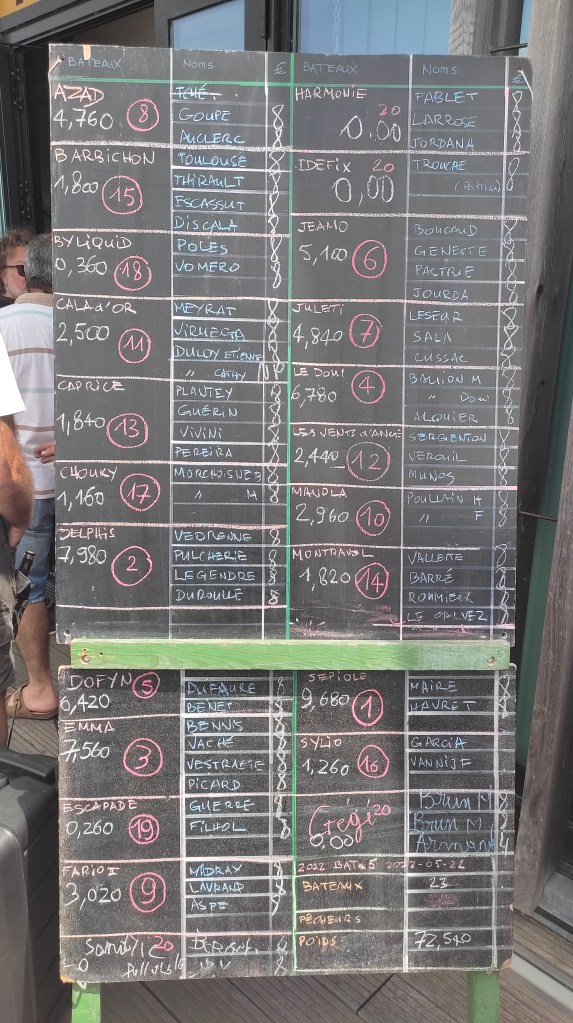 BATEAUX NOMS £ BATEAUX NOMS £
AZAD TCHÉ.
4,760 8 GOUPE 8
AUCLERC 8
BARBICHON TOULOUSE 8
1,800 15 THIRAULT 8
ESCASSUT 8
DISCALA 8
BYLIQUID POLES 8
0,360 18 VOMERO 8
CALA d'OR MEYRAT 8
2,500 11
DULOY ETIENNE
" CATHY
CAPRICE PLANTEY 8
1,840 13 GUÉRIN 8
VIVINI 8
PEREIRA 8
CHOUKY
1,160 17 " M 8
DELPHIS VEDRENNE 8
7,980 2 PULCHERIE 8
LEGENDRE 8
DUROULLE 8
HARMONIE 20 FABLET 8
0.00 LARROSE 8
JORDANA 8
IDEFIX 20 TROUCHE 8
0,00
JEAMO BOUCAUD 8
5,100 6 GENESTE 8
PASTRIE 8
JOURDA 8
JULETI LESEUR 8
4,840 7 SALA 8
CUSSAC 8
LE DOMI BALLION M 8
6,780 4 " DOMI 8
ALQUIER 8
LES VENTS d'ANGE SERGENTON 8
2,440 12 VEROUIL 8
MUNOS 8
MANOLA POULLAIN H 8
2,960 10 " F 8
MONTRAVEL VALLETTE 8
1,820 14 BARRÉ 8
ROMMIEUX 8
DOFYN 5 DUFAURE 8
6,420 BENET 8
EMMA BENNIS 8
7,560 3 VACHÉ 8
VESTRAETE 8
PICARD 8
ESCAPADE GUERRE 4
0,260 19 FILHOL 8
FARIO II MADRAY 8
3,020 9 LAVRAND 8
ASPE 8
20
0
SEPIOLE MAIRE 8
9,680 1 HAVRET 8
SYLIO GARCIA 8
1,260 16 VANNIJE 8
Cregi 20 Brun M 8
0,00 Brun M. 8
4
BATEAUX 23
PÊCHEURS
POIDS 72,540